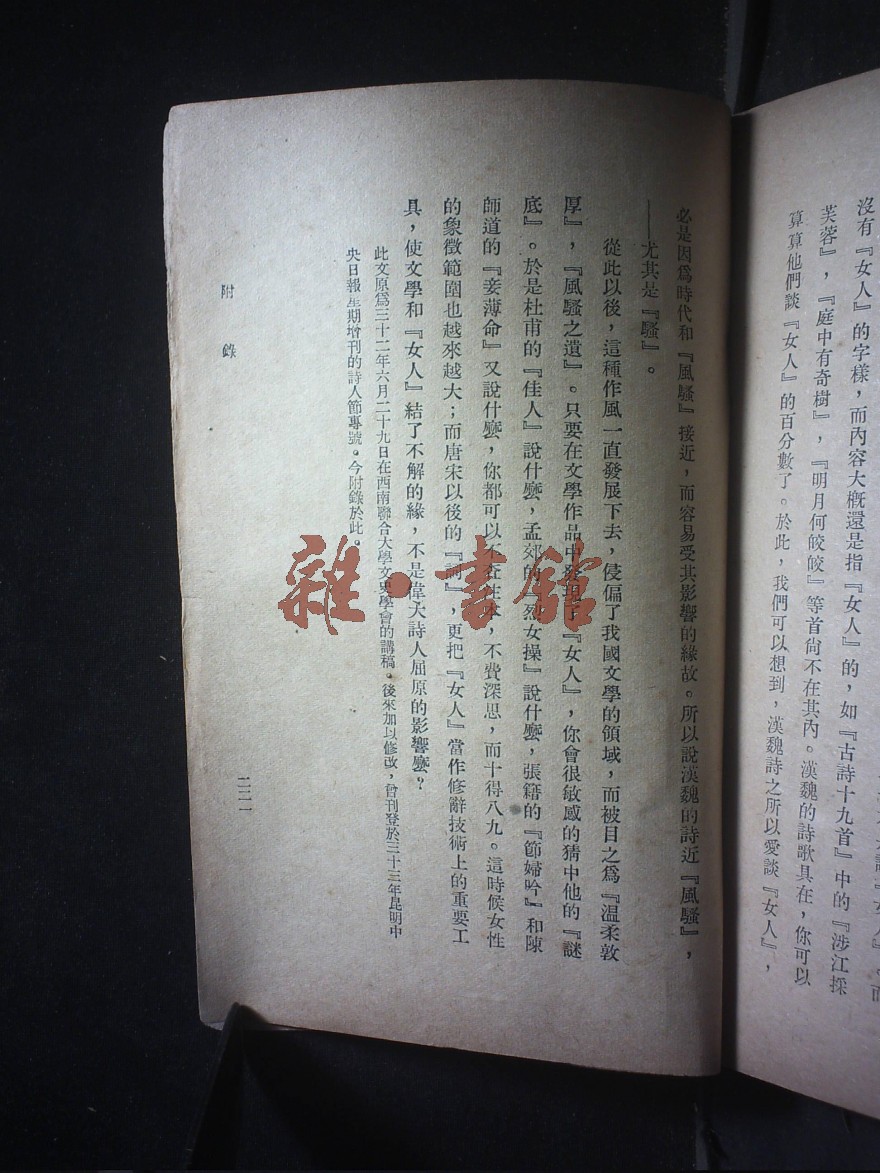 沒有『女人』的字樣，而內容大概還是指『女人』的，如『古詩十九首』中的『涉江採
芙蓉』，『庭中有奇樹』，『明月何皎皎』等首尙不在其內。漢魏的詩歌具在，你可以
算算他們談『女人』的百分數了。於此，我們可以想到，漢魏詩之所以愛談『女人』，
必是因爲時代和『風騷』接近，而容易受其影響的緣故。所以說漢魏的詩近『風騷』，
——尤其是『騷』。
從此以後，這種作風一直發展下去，侵徧了我國文學的領域，而被目之爲『溫柔敦
厚』，『風騷之遺』。只要在文學作品中發現了『女人』，你會很敏感的猜中他的『謎
底』。於是杜甫的『佳人』說什麼，孟郊的『烈女操』說什麼，張籍的『節婦吟』和陳
師道的『妾薄命』又說什麼，你都可以不查注本，不費深思，而十得八九。這時候女性
的象徵範圍也越來越大；而唐宋以後的『詞』，更把『女人』當作修辭技術上的重要工
具，使文學和『女人』結了不解的緣，不是偉大詩人屈原的影響麼？
此文原爲三十二年六月二十九日在西南聯合大學文史學會的講稿。後來加以修改，曾刊登於三十三年昆明中
央日報星期增刊的詩人節專號。今附錄於此。
附錄
二二一
雜·書館